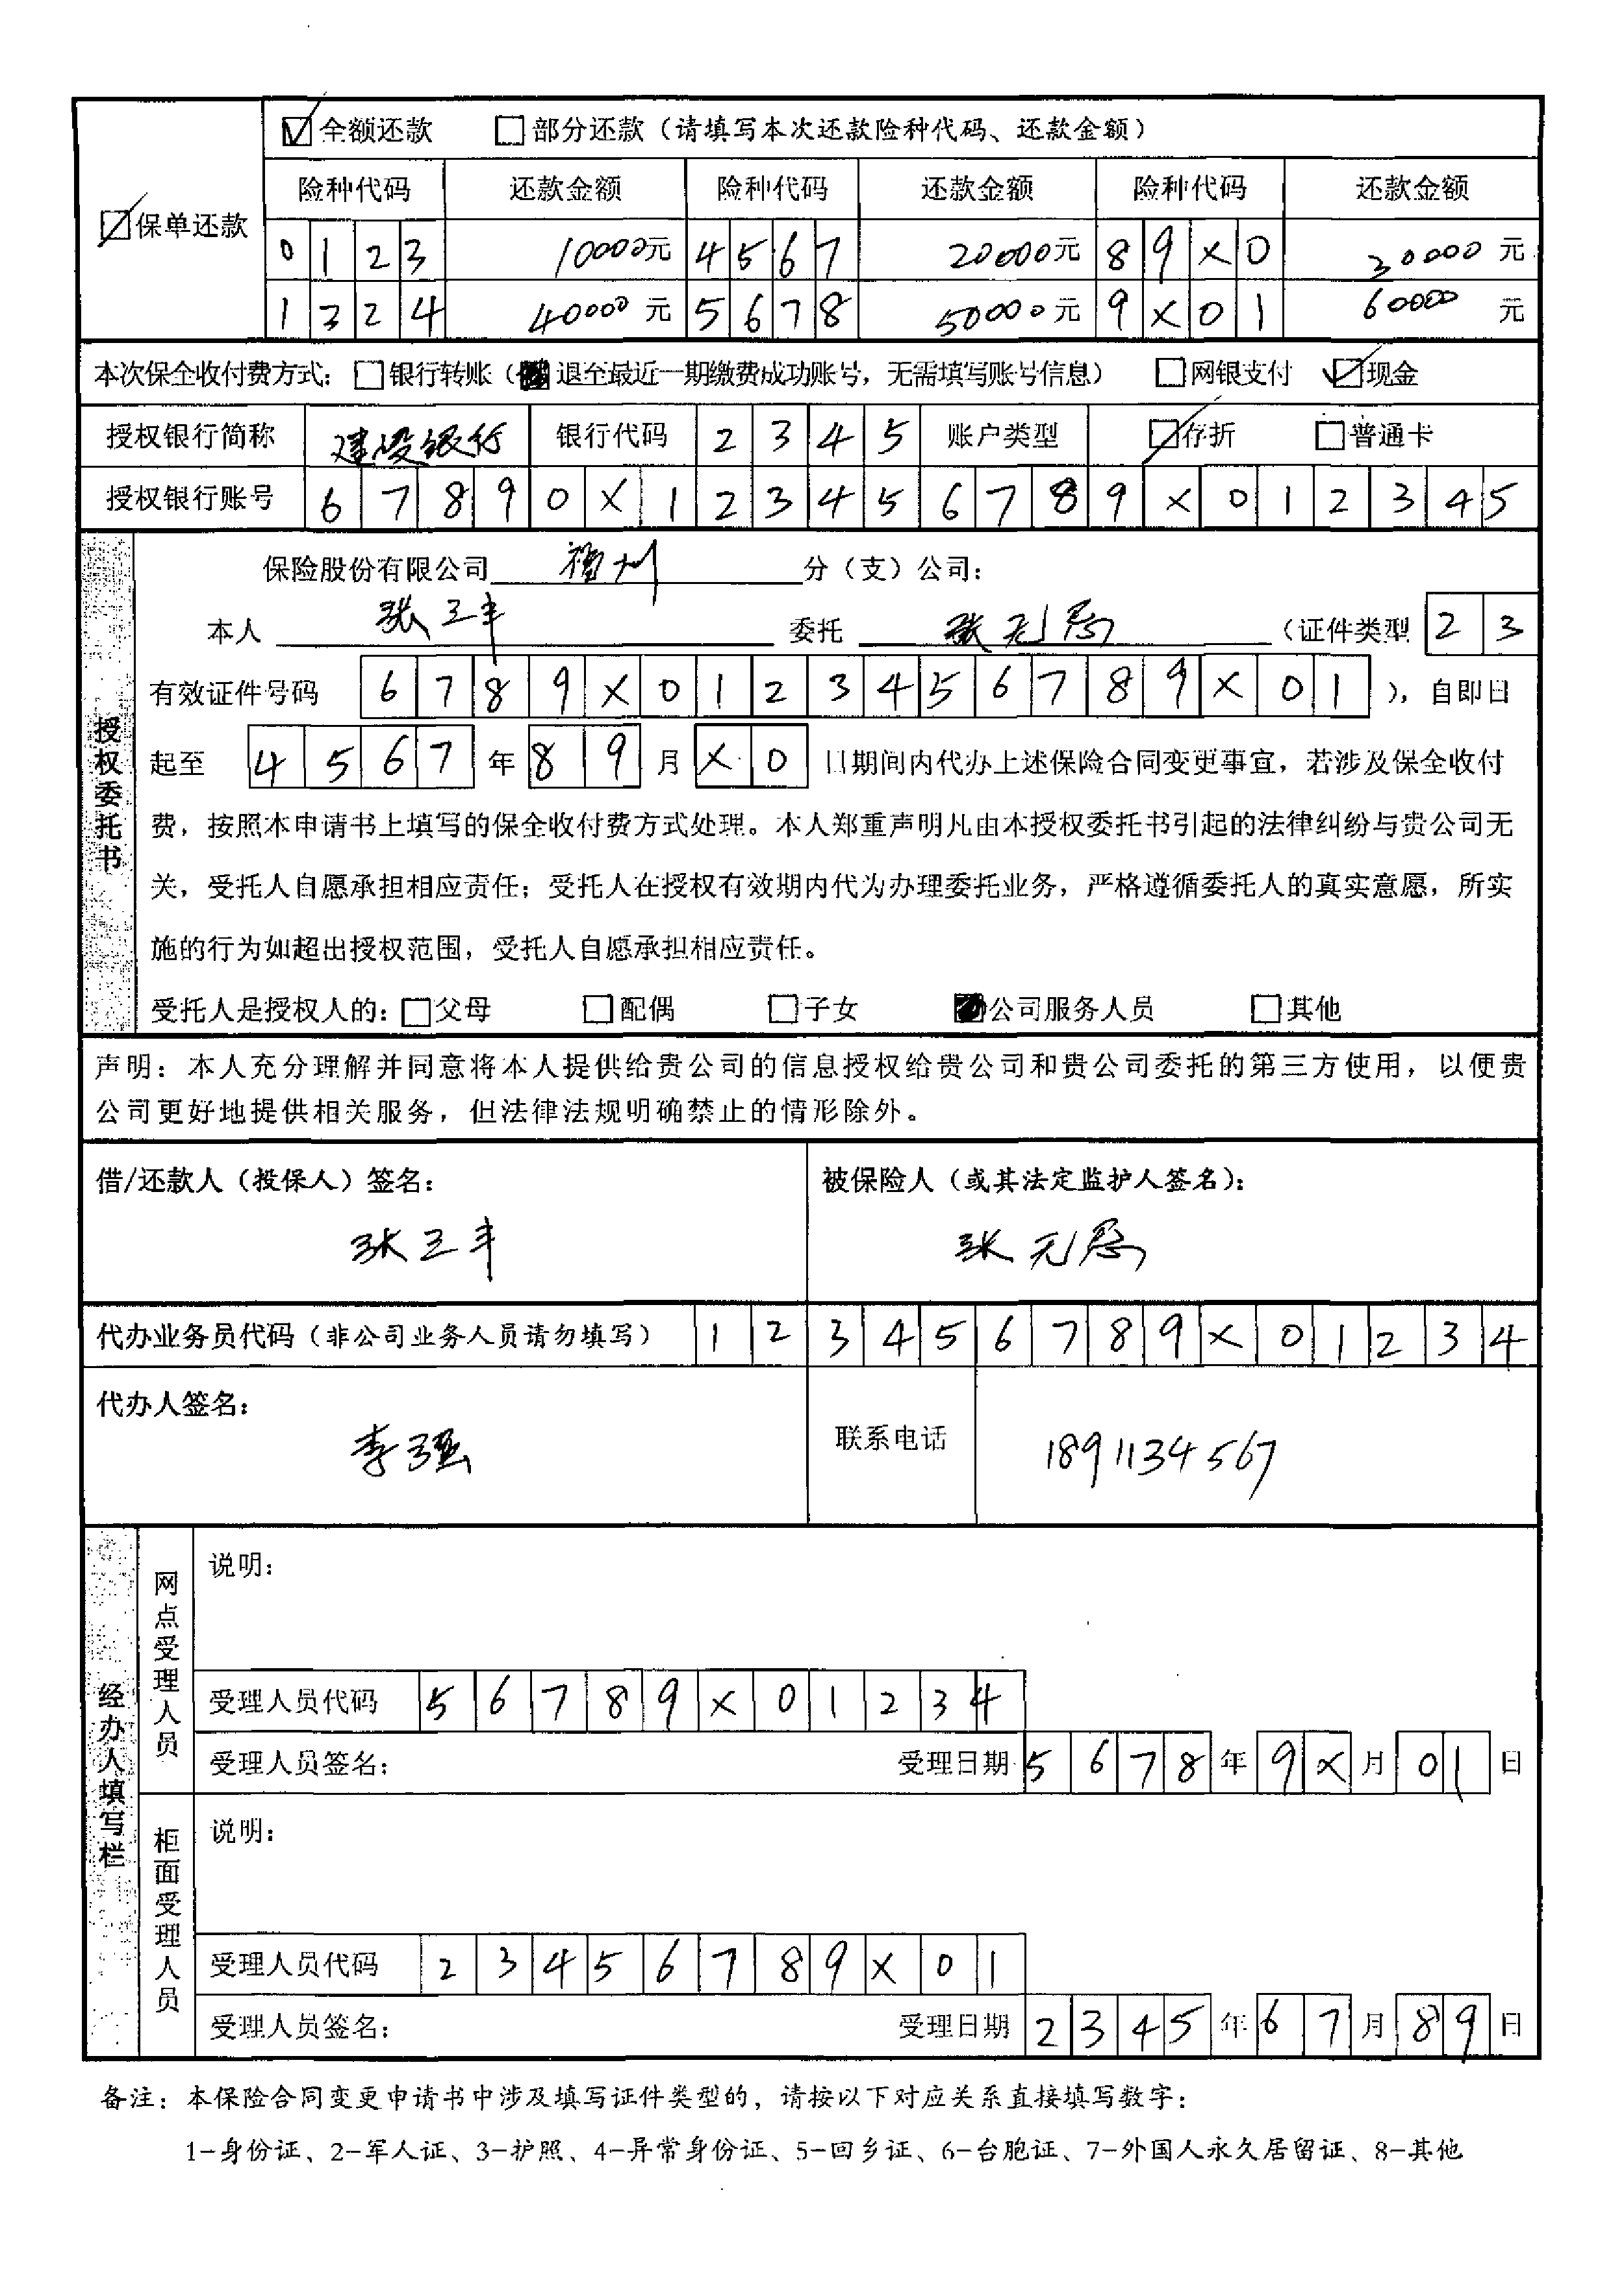 ☑全额还款 □部分还款（请填写本次还款险种代码、还款金额）
险种代码 还款金额 险种代码 还款金额 险种代码 还款金额
☑保单还款
0123 10000元 4567 20000元 89X0 30000元
1324 40000元 5678 50000元 9X01 60000元
本次保全收付费方式：□银行转账（■退至最近一期缴费成功账号，无需填写账号信息） □网银支付 ☑现金
授权银行简称 建设银行 银行代码 2345 账户类型 ☑存折 □普通卡
授权银行账号 67890X123456789X012345
授权委托书
保险股份有限公司 福州 分（支）公司：
本人 张三丰 委托 张无忌 （证件类型 23
有效证件号码 6789X0123456789X01 ），自即日
起至 4567 年 89 月 X0 日期间内代办上述保险合同变更事宜，若涉及保全收付
费，按照本申请书上填写的保全收付费方式处理。本人郑重声明凡由本授权委托书引起的法律纠纷与贵公司无
关，受托人自愿承担相应责任；受托人在授权有效期内代为办理委托业务，严格遵循委托人的真实意愿，所实
施的行为如超出授权范围，受托人自愿承担相应责任。
受托人是授权人的：□父母 □配偶 □子女 ■公司服务人员 □其他
声明：本人充分理解并同意将本人提供给贵公司的信息授权给贵公司和贵公司委托的第三方使用，以便贵
公司更好地提供相关服务，但法律法规明确禁止的情形除外。
借/还款人（投保人）签名： 被保险人（或其法定监护人签名）：
张三丰 张无忌
代办业务员代码（非公司业务人员请勿填写） 123456789X01234
代办人签名：
李强 联系电话 1891134567
经办人填写栏
网点受理人员
说明：
受理人员代码 56789X01234
受理人员签名： 受理日期 5678 年 9X 月 01 日
柜面受理人员
说明：
受理人员代码 23456789X01
受理人员签名： 受理日期 2345 年 67 月 89 日
备注：本保险合同变更申请书中涉及填写证件类型的，请按以下对应关系直接填写数字：
1-身份证、2-军人证、3-护照、4-异常身份证、5-回乡证、6-台胞证、7-外国人永久居留证、8-其他